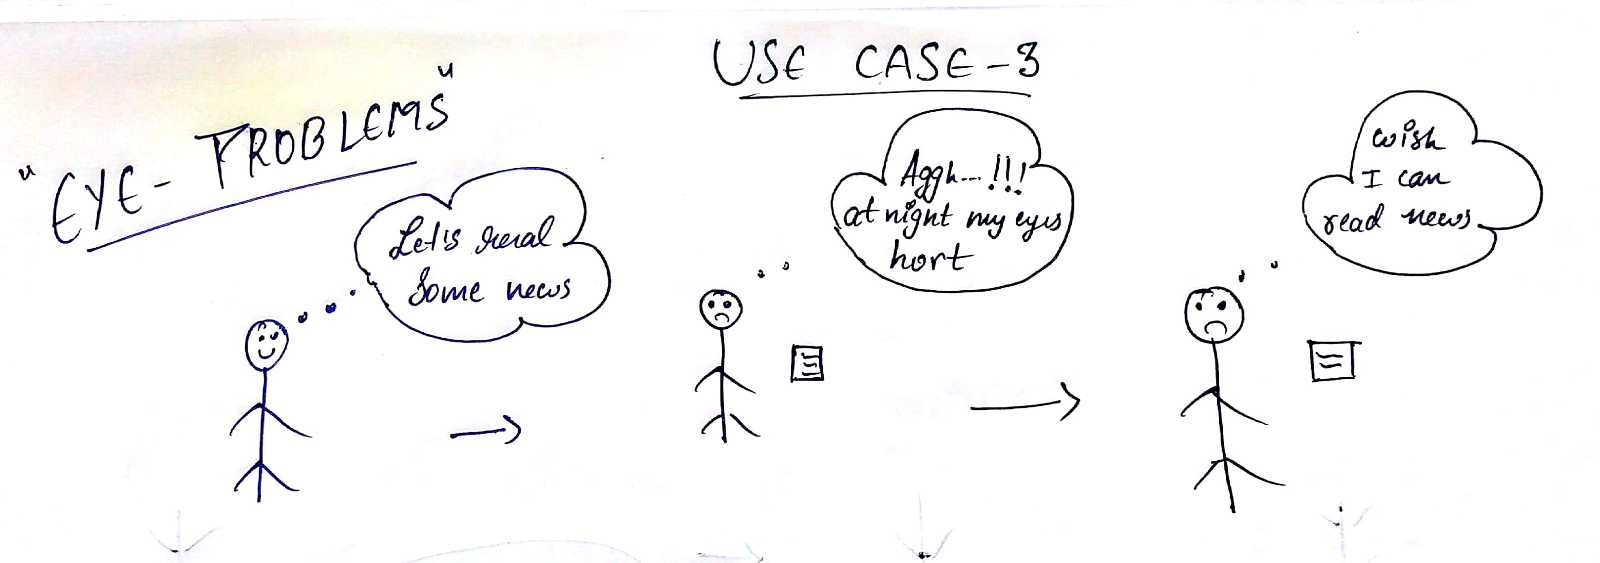 USE CASE-3
"EYE-PROBLEMS"
Let's read
Some news
Aggh...!!!
at night my eyes
hort
wish
I can
read news